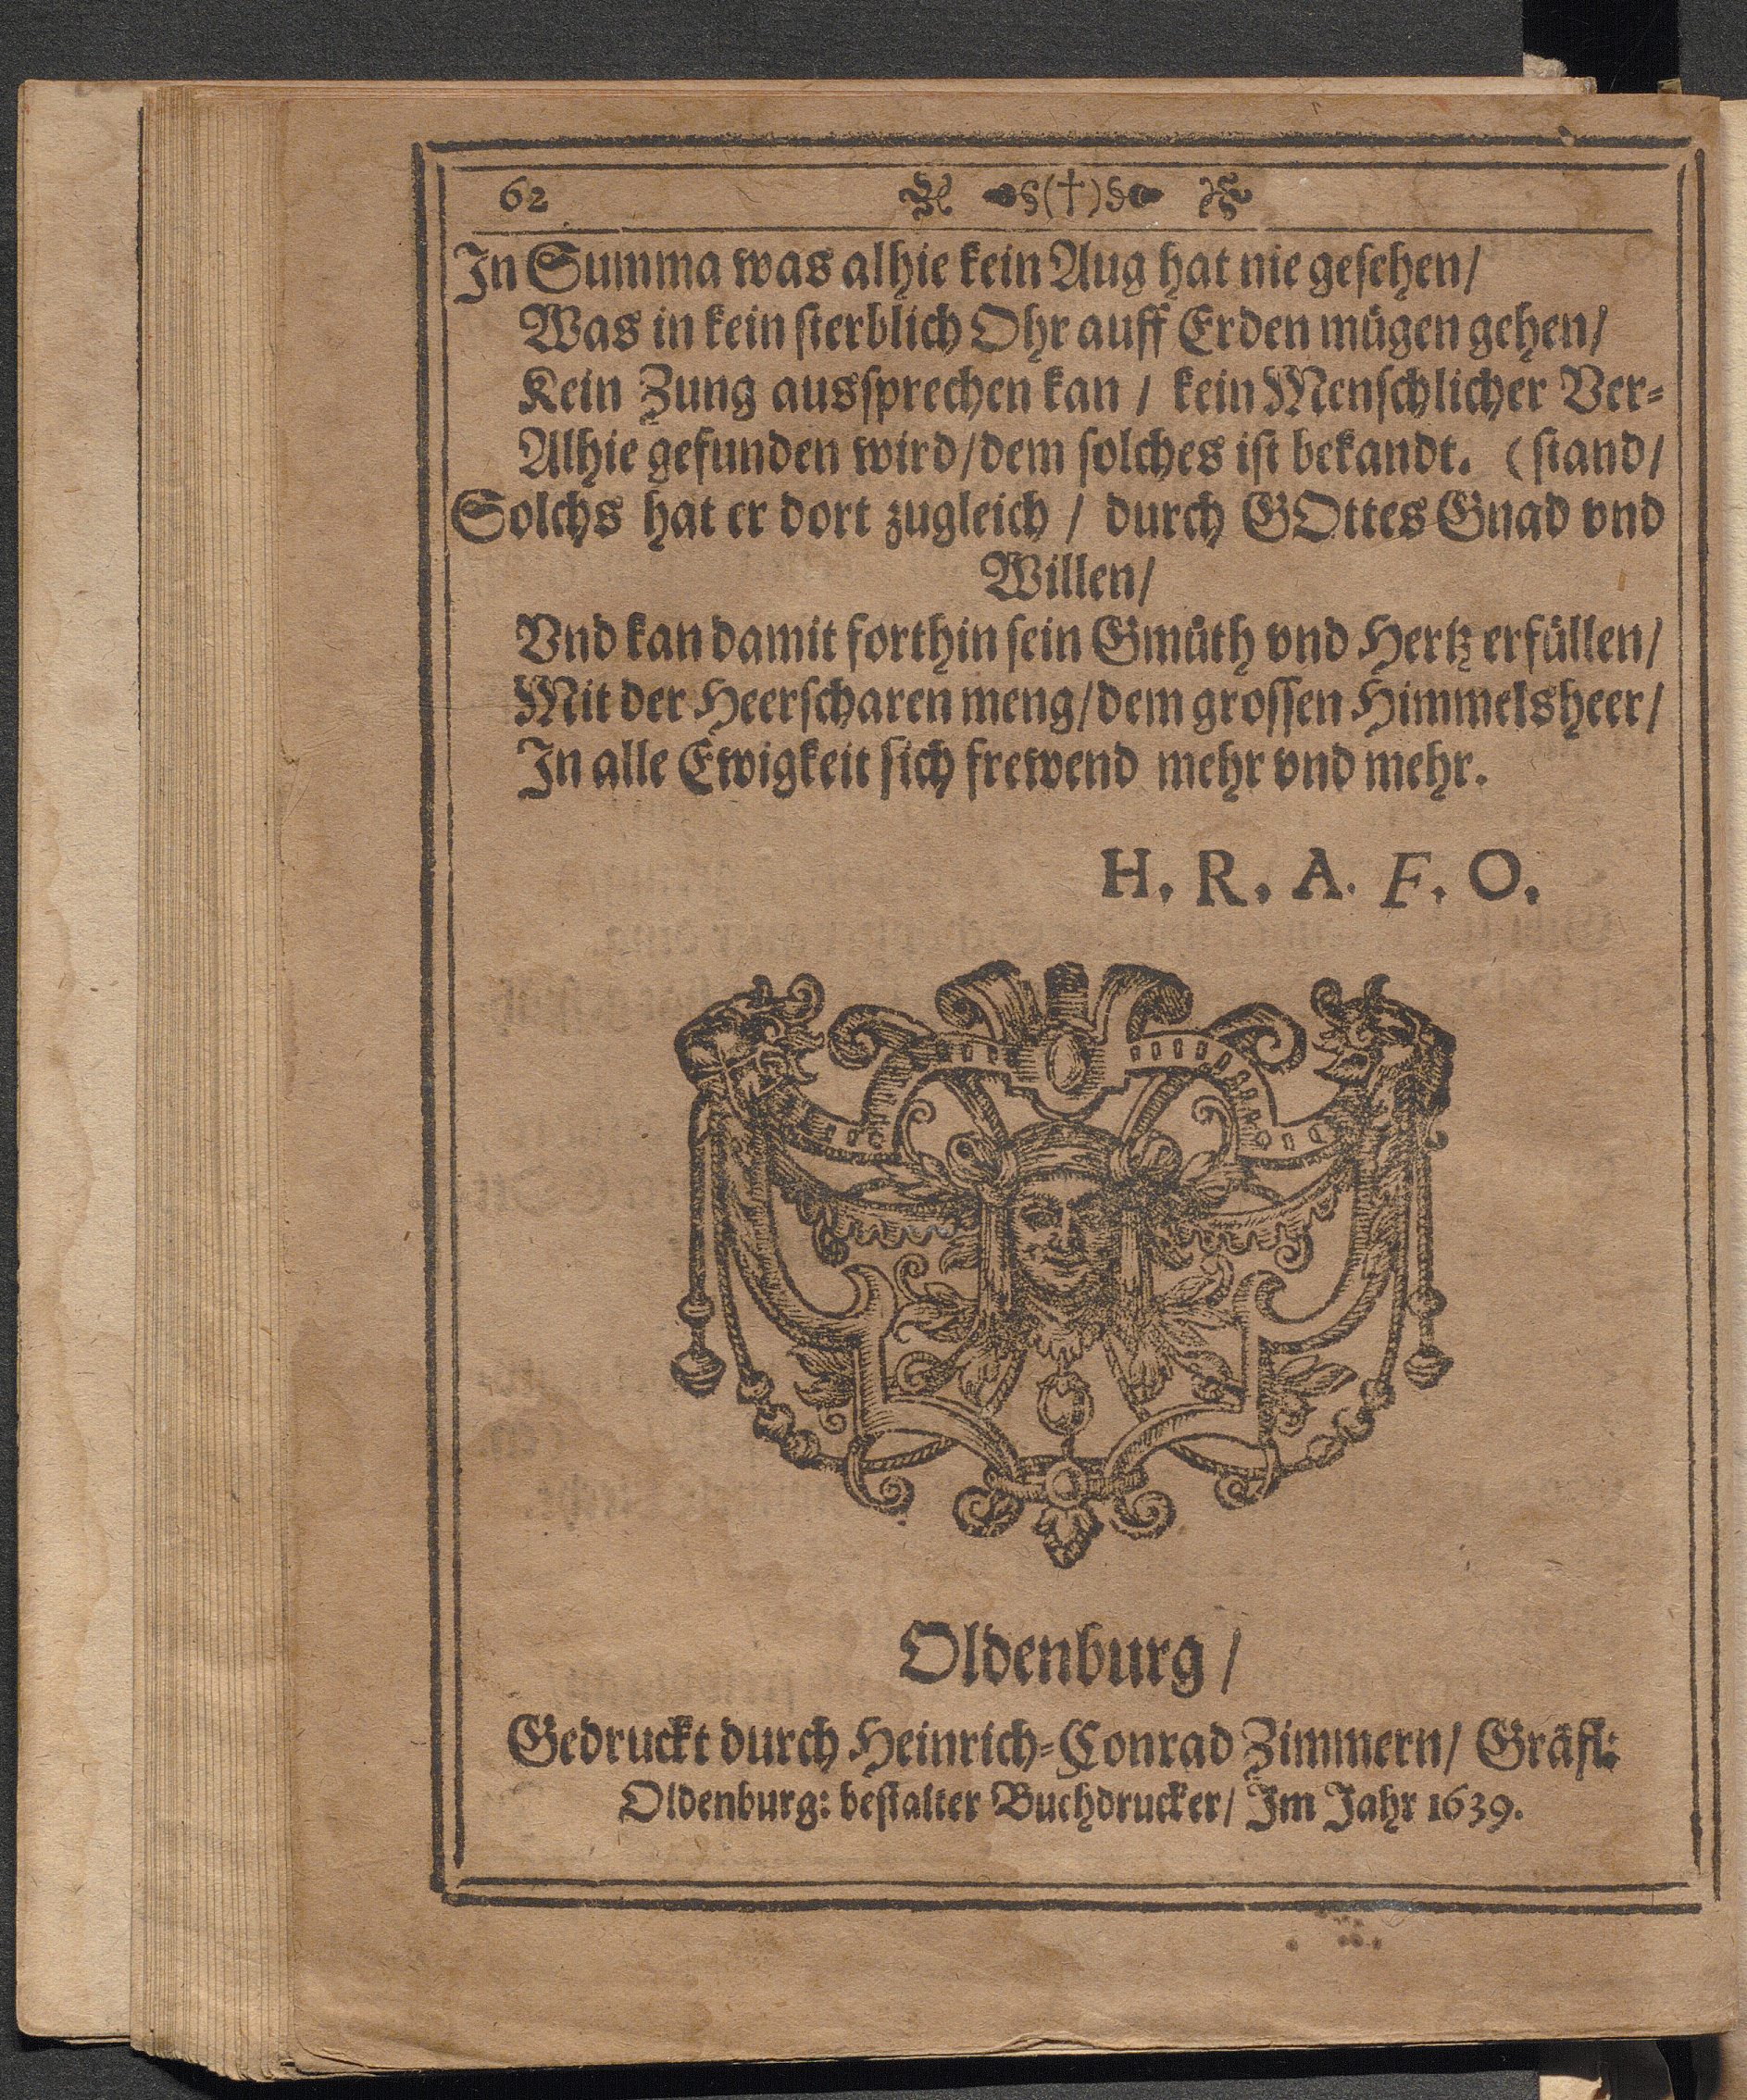 62 §(†)§
In Summa was alhie kein Aug hat nie gesehen/
Was in kein sterblich Ohr auff Erden mügen gehen/
Kein Zung aussprechen kan / kein Menschlicher Ver-
Alhie gefunden wird/dem solches ist bekandt. (stand/
Solchs hat er dort zugleich / durch GOttes Gnad vnd
Willen/
Vnd kan damit forthin sein Gmüth vnd Hertz erfüllen/
Mit der Heerscharen meng/dem grossen Himmelsheer/
In alle Ewigkeit sich frewend mehr vnd mehr.
H. R. A. F. O.
Oldenburg /
Gedruckt durch Heinrich-Conrad Zimmern/ Gräfl:
Oldenburg: bestalter Buchdrucker/ Im Jahr 1639.